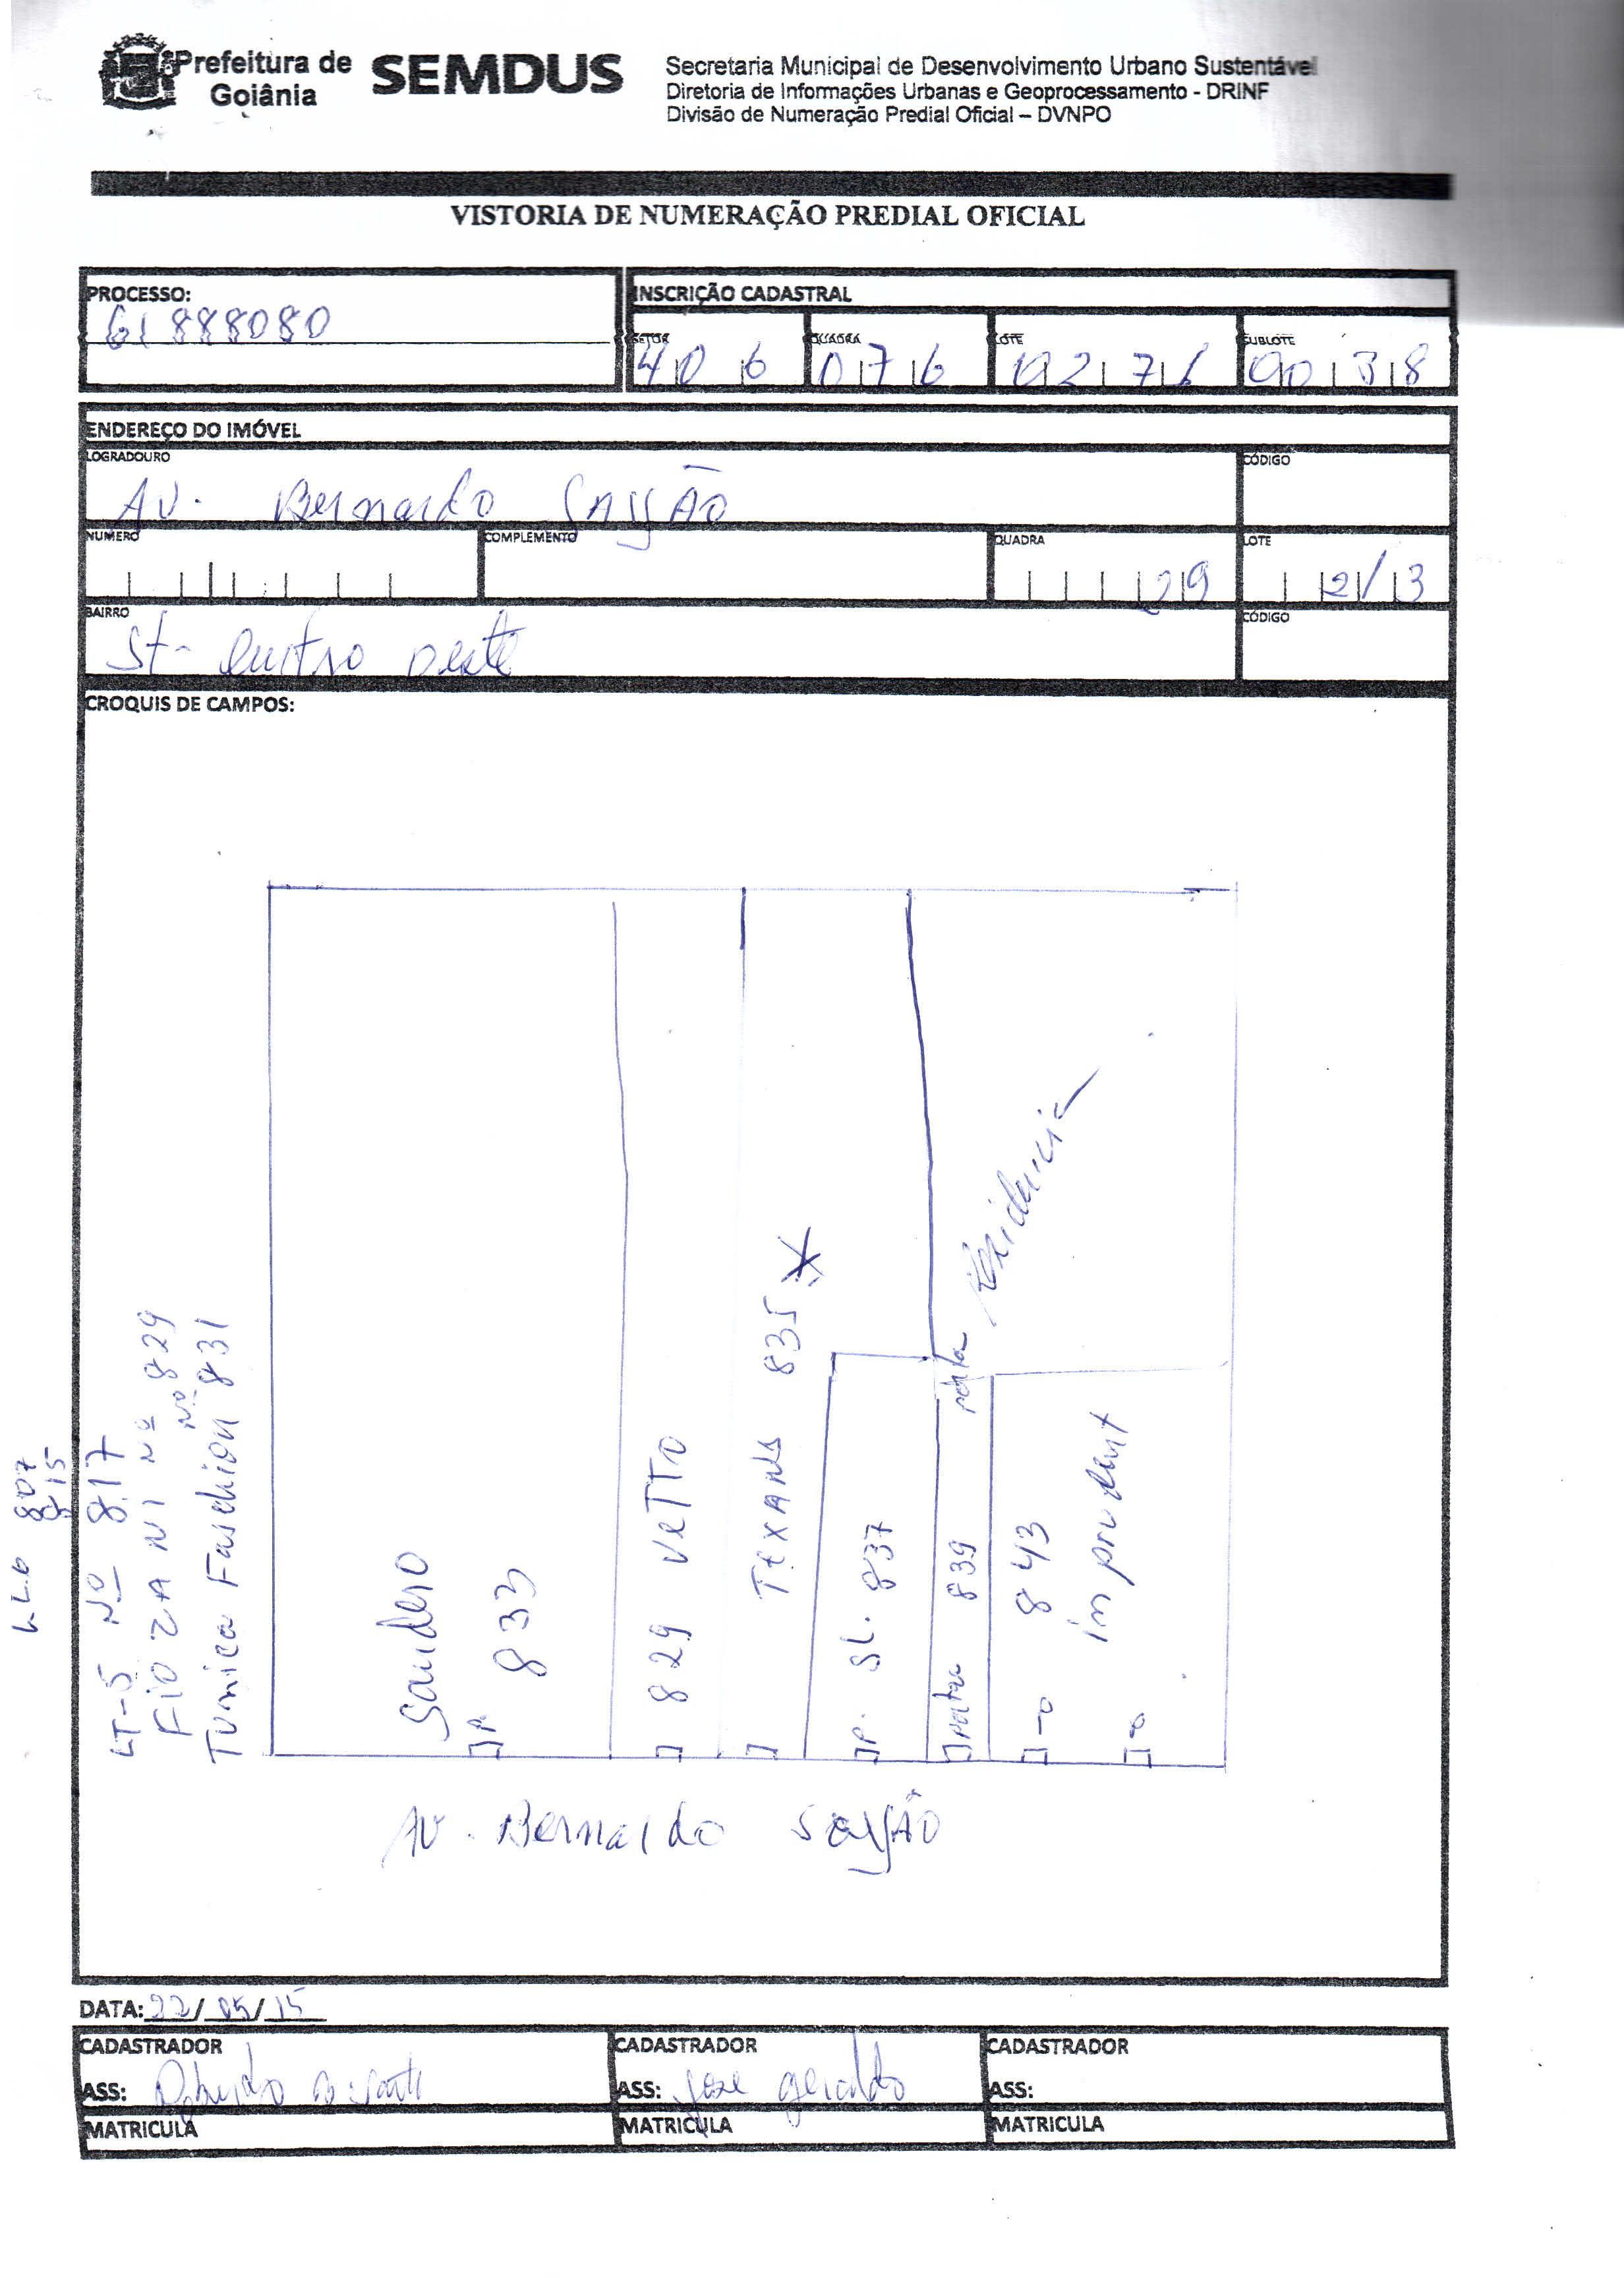 Prefeitura de Goiânia
SEMDUS
Secretaria Municipal de Desenvolvimento Urbano Sustentável
Diretoria de Informações Urbanas e Geoprocessamento - DRINF
Divisão de Numeração Predial Oficial – DVNPO
VISTORIA DE NUMERAÇÃO PREDIAL OFICIAL
PROCESSO:
61888080
INSCRIÇÃO CADASTRAL
SETOR QUADRA LOTE SUBLOTE
406 076 0038
ENDEREÇO DO IMÓVEL
LOGRADOURO CÓDIGO
AV. Bernardo SAYÃO
NUMERO COMPLEMENTO QUADRA LOTE
29 2/3
BAIRRO CÓDIGO
St- Centro oeste
CROQUIS DE CAMPOS:
807
815
LT-5 Nº 817
FIOZANI Nº 829
Tunica Faschion Nº 831
Sandero
P.
833
829 VeTTO
TEXANS 835
P. SL. 837
porta 839
porta
Residencia
843
imprudent
AV. Bernardo SAYÃO
DATA: 22/05/15
CADASTRADOR CADASTRADOR CADASTRADOR
ASS: ASS: Jose geraldo ASS:
MATRICULA MATRICULA MATRICULA